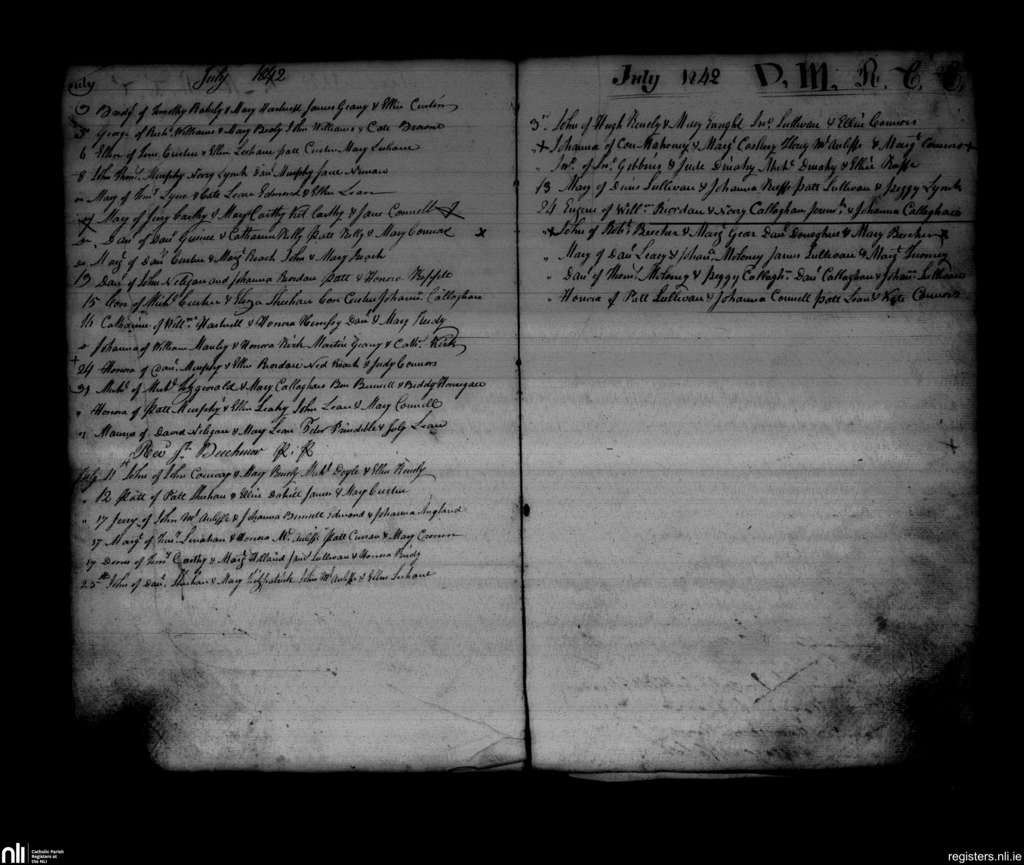 July
July 1842
3 Bardy of Timothy Raholy & Mary Hartnett James Geany & Ellen Curtin
5 George of Richd. Williams & Mary Brosly John Williams & Cate Browne
6 Ellen of Tim Curtin & Ellen Leehane patt Curtin Mary Linhane
8 John Thoms. Murphy Nory Lynch Danl. Murphy Jane Noonan
Mary of Timy. Lyne & Cate Leane Edmond & Ellen Lean
Mary of Jery Carthy & Mary Carthy Kit Carthy & Jane Connell
Danl. of Danl. Guinee & Catharin Kelly Patt Kelly & Mary Connor
Margt. of Danl. Curtin & Margt. Roach John & Mary Roach
13 Danl. of John Neligan and Johanna Riordan Patt & Honora
15 Con of Michl. Curtin & Eliza Sheehan Con Curtin Johanna Callaghan
16 Catharine of Willm. Hartnett & Honora Danl. & Mary
Johanna of William Manley & Honora Kirk Martin Geany & Cathn. Kirk
24 Honora of Danl. Murphy & Ellen Riordan Ned Roach & Judy Connors
31 Michl. of Michl. Fitzgerald & Mary Callaghan Ben Bunnell & Biddy Hanegan
" Honora of Patt Murphy & Ellen Leahy John Leane & Mary Connell
" Maurice of David Neligan & Mary Lean Peter & July Leane
Revd. Jr. P. P.
July 11th John of John Conway & Mary Michl. Doyle & Ellen
" 12 Patt of Patt Sheehan & Ellen Dahill James & Mary Curtin
" 17 Jerry of John McAuliffe & Johanna Bunnell Edmond & Johanna Angland
17 Margt. of Timy. Linahan & Honora McAuliffe Patt Curran & Mary Cronin
17 Denis of Timy. Carthy & Margt. Holland Jams. Sullivan & Honora
25th John of Danl. Sheehan & Mary Fitzpatrick John McAuliffe & Ellen Linhane
July 1842 D. M. R. C. C.
3rd. John of Hugh & Mary Jno. Sullivan & Ellen Connors
Johanna of Con Mahoney & Margt. Henry McAuliffe & Margt. Connor
" Jno. of Jno. Gibbins & Jude Michl. & Ellen
13 Mary of Denis Sullivan & Johanna Patt Sullivan & Peggy Lynch
24 Eugene of Willm. Riordan & Nory Callaghan Jeremh. & Johanna Callaghan
John of Robt. Beecher & Margt. Gear Danl. Donoghue & Mary Beecher
" Mary of Danl. Leary & Johana. Moloney James Sullivan & Margt. Twomey
" Danl. of Thoms. Moloney & Peggy Callaghn. Danl. Callaghan & Johana. Sullivan
" Honora of Patt Sullivan & Johanna Connell Patt Leane & Kate Connors
nli Catholic Parish Registers at the NLI
registers.nli.ie